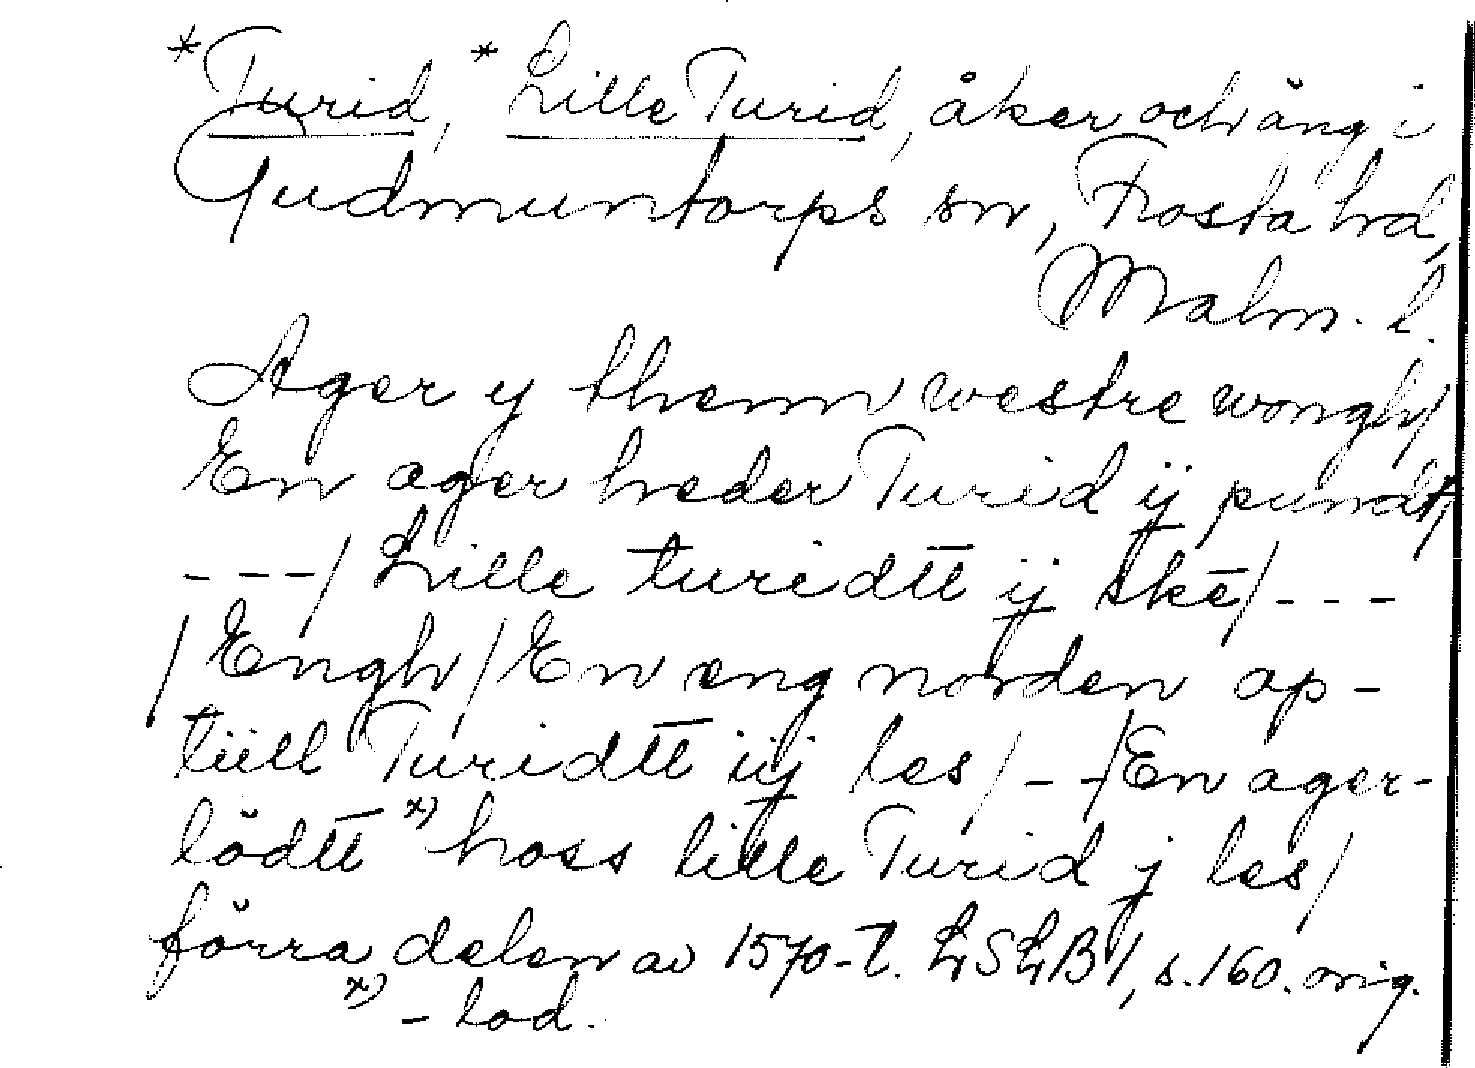 *Turid, *Lille Turid, åker och äng i
Gudmuntorps sn, Frosta hd,
Malm. l.
Ager y thenn westre wongh/
En ager heder Turid ij pundt/
---/ Lille turidtt ij skē/---
/Engh/En eng norden op-
tiill Turidtt iij les/--/En ager-
lödtt x) hoss lille Turid j les/
förra delen av 1570-t. LSLB 1, s. 160. orig.
x) - lod.